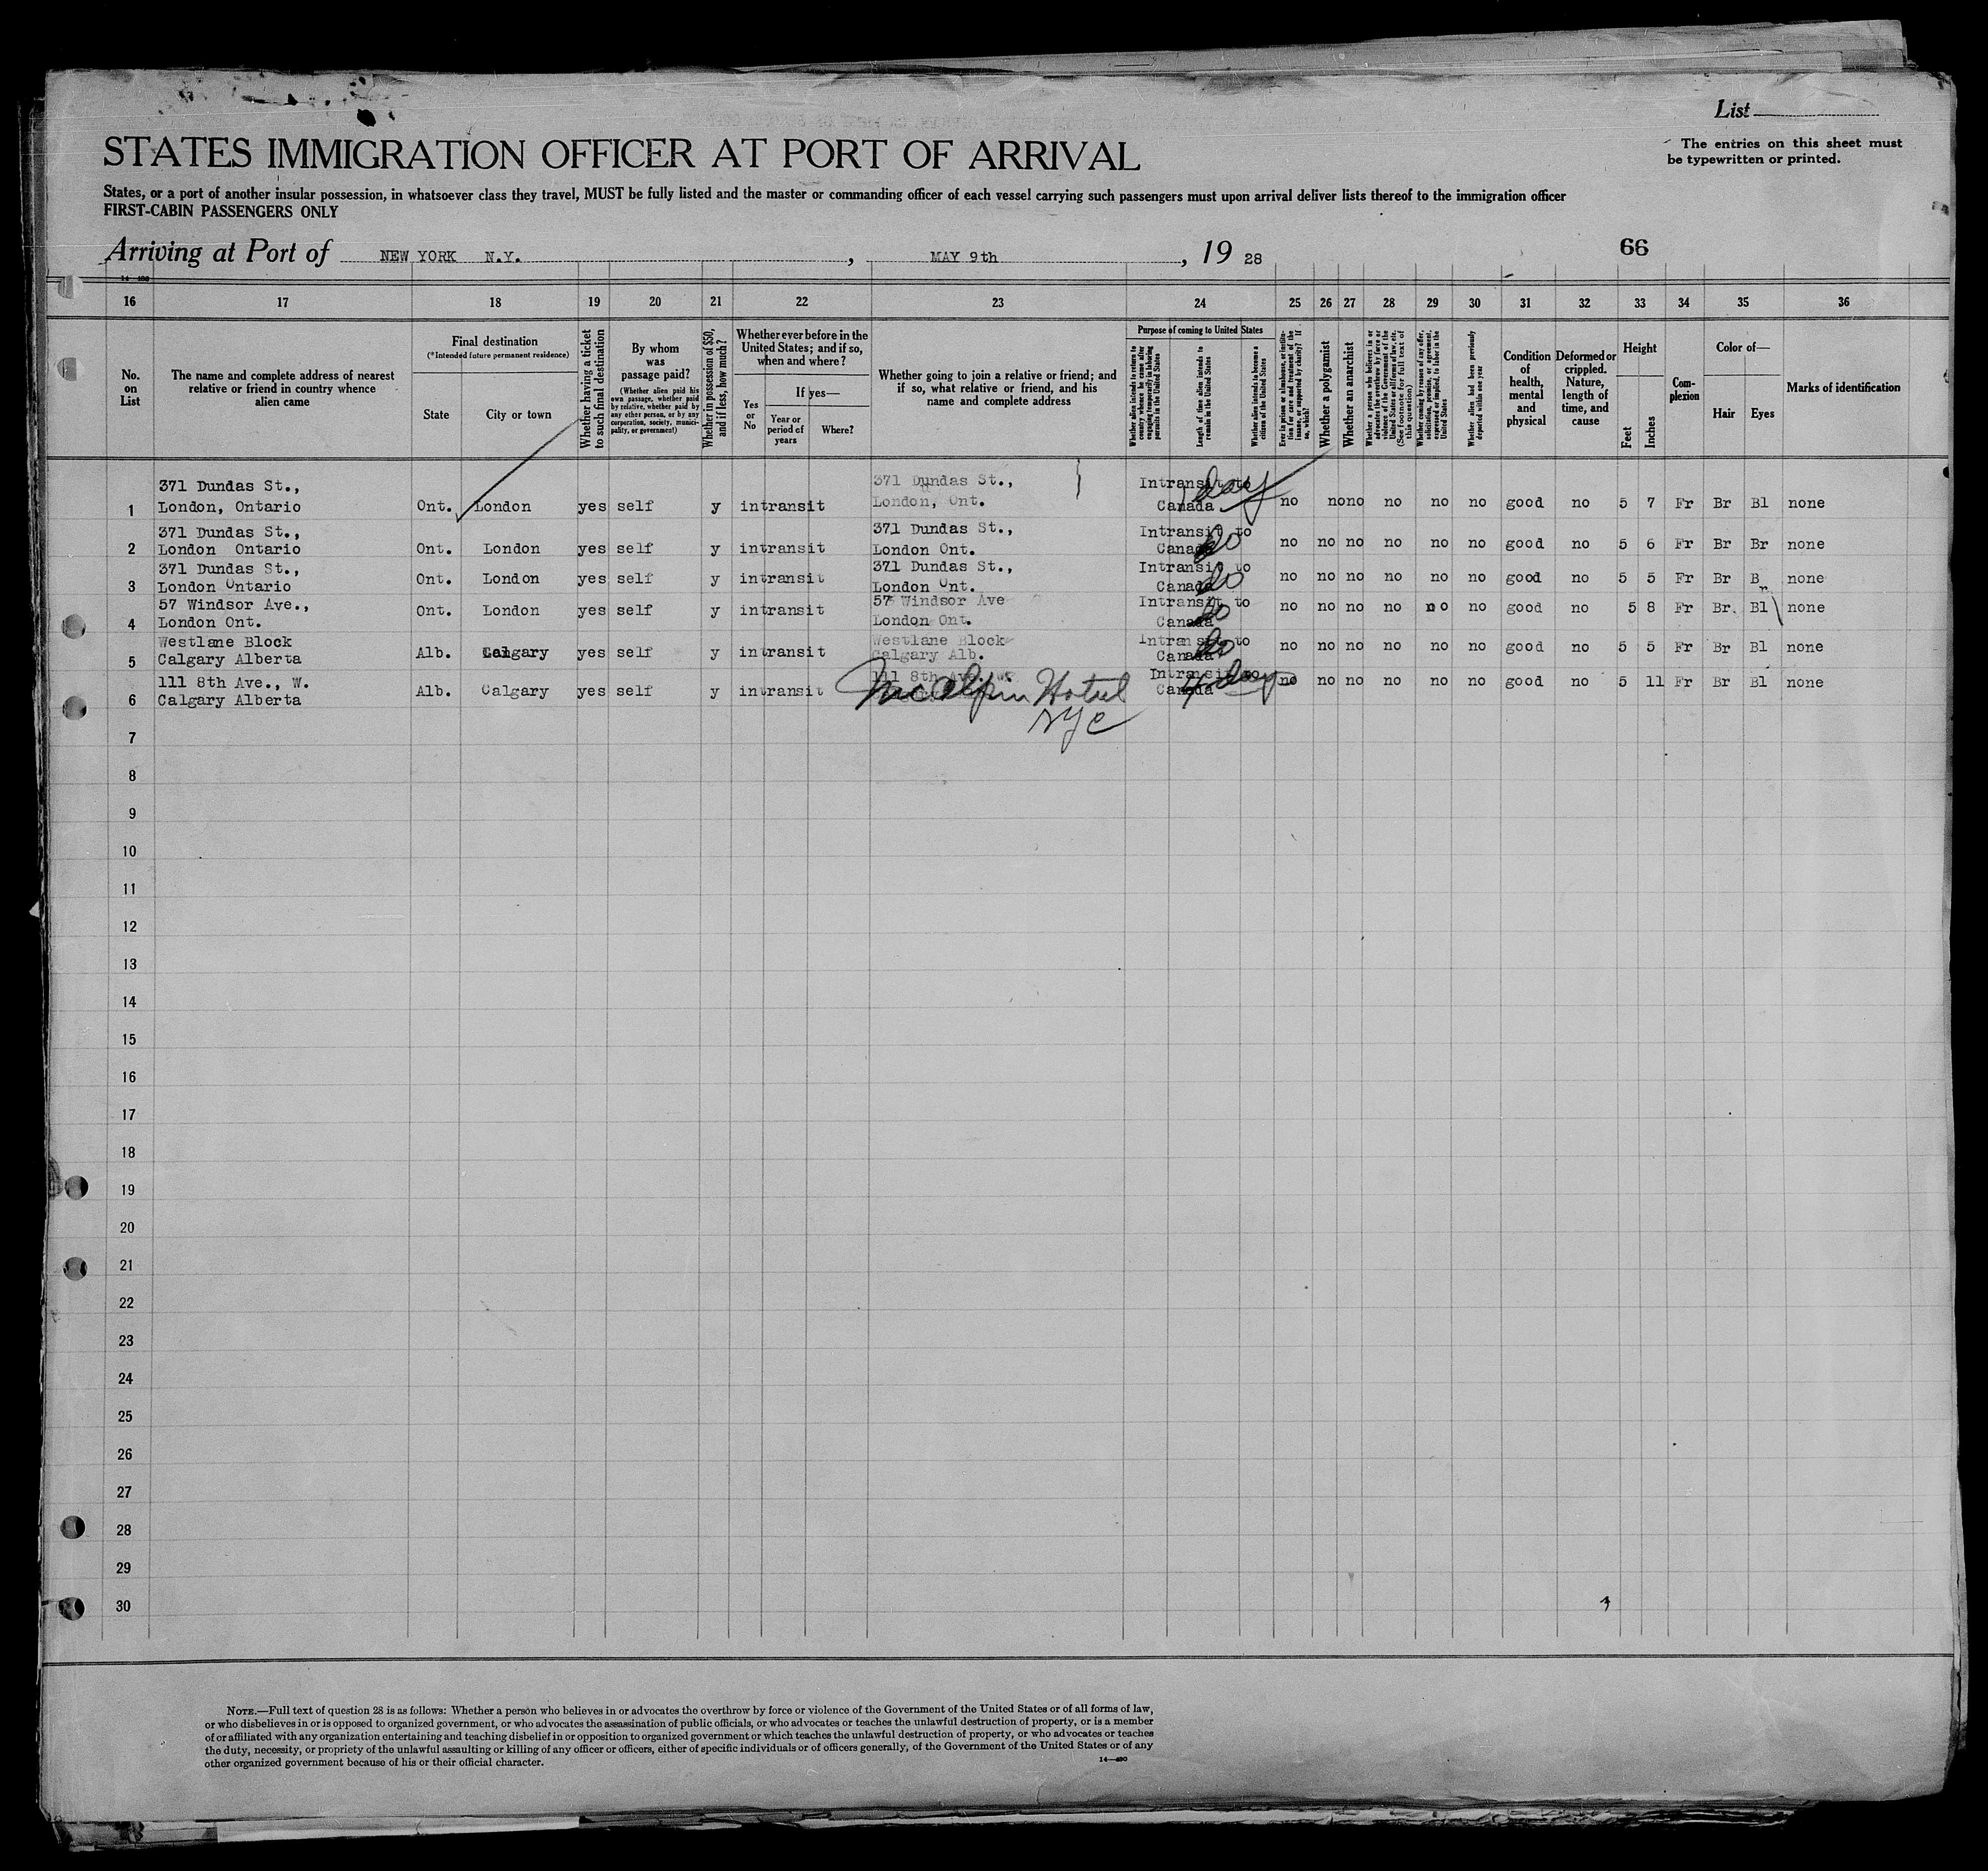 List
STATES IMMIGRATION OFFICER AT PORT OF ARRIVAL
The entries on this sheet must
be typewritten or printed.
States, or a port of another insular possession, in whatsoever class they travel, MUST be fully listed and the master or commanding officer of each vessel carrying such passengers must upon arrival deliver lists thereof to the immigration officer
FIRST-CABIN PASSENGERS ONLY
Arriving at Port of NEW YORK N.Y. , MAY 9th , 19 28
66
16 17 18 19 20 21 22 23 24 25 26 27 28 29 30 31 32 33 34 35 36
No. on List
The name and complete address of nearest
relative or friend in country whence
alien came
Final destination
(*Intended future permanent residence)
State
City or town
Whether having a ticket
to such final destination
By whom
was
passage paid?
(Whether alien paid his
own passage, whether paid
by relative, whether paid by
any other person, or by any
corporation, society, munici-
pality, or government!)
Whether in possession of $50,
and if less, how much?
Whether ever before in the
United States; and if so,
when and where?
Yes
or
No
If yes—
Year or
period of
years
Where?
Whether going to join a relative or friend; and
if so, what relative or friend, and his
name and complete address
Purpose of coming to United States
Whether alien intends to return to
country whence he came after
engaging temporarily in laboring
pursuits in the United States
Length of time alien intends to
remain in the United States
Whether alien intends to become a
citizen of the United States
Ever in prison or almshouse, or institu-
tion for care and treatment of the
insane, or supported by charity? If
so, which?
Whether a polygamist
Whether an anarchist
Whether a person who believes in or
advocates the overthrow by force or
violence of the Government of the
United States or all forms of law, etc.
(See footnote for full text of
this question)
Whether coming by reason of any offer,
solicitation, promise, or agreement,
expressed or implied, to labor in the
United States
Whether alien had been previously
deported within one year
Condition
of
health,
mental
and
physical
Deformed or
crippled.
Nature,
length of
time, and
cause
Height
Feet
Inches
Com-
plexion
Color of—
Hair
Eyes
Marks of identification
371 Dundas St., 371 Dundas St., Intransit to
1 London, Ontario Ont. London yes self y intransit London, Ont. Canada day no no no no no no good no 5 7 Fr Br Bl none
371 Dundas St., 371 Dundas St., Intransit to
2 London Ontario Ont. London yes self y intransit London Ont. Canada do no no no no no no good no 5 6 Fr Br Br none
371 Dundas St., 371 Dundas St., Intransit to
3 London Ontario Ont. London yes self y intransit London Ont. Canada do no no no no no no good no 5 5 Fr Br Br none
57 Windsor Ave., 57 Windsor Ave Intransit to
4 London Ont. Ont. London yes self y intransit London Ont. Canada do no no no no no no good no 5 8 Fr Br Bl none
Westlane Block Westlane Block Intransit to
5 Calgary Alberta Alb. Calgary yes self y intransit Calgary Alb. Canada do no no no no no no good no 5 5 Fr Br Bl none
111 8th Ave., W. 111 8th Ave., W. Intransit to
6 Calgary Alberta Alb. Calgary yes self y intransit McAlpin Hotel Canada day no no no no no no good no 5 11 Fr Br Bl none
NYC
7
8
9
10
11
12
13
14
15
16
17
18
19
20
21
22
23
24
25
26
27
28
29
30
NOTE.—Full text of question 28 is as follows: Whether a person who believes in or advocates the overthrow by force or violence of the Government of the United States or of all forms of law,
or who disbelieves in or is opposed to organized government, or who advocates the assassination of public officials, or who advocates or teaches the unlawful destruction of property, or is a member
of or affiliated with any organization entertaining and teaching disbelief in or opposition to organized government or which teaches the unlawful destruction of property, or who advocates or teaches
the duty, necessity, or propriety of the unlawful assaulting or killing of any officer or officers, either of specific individuals or of officers generally, of the Government of the United States or of any
other organized government because of his or their official character.
14—490